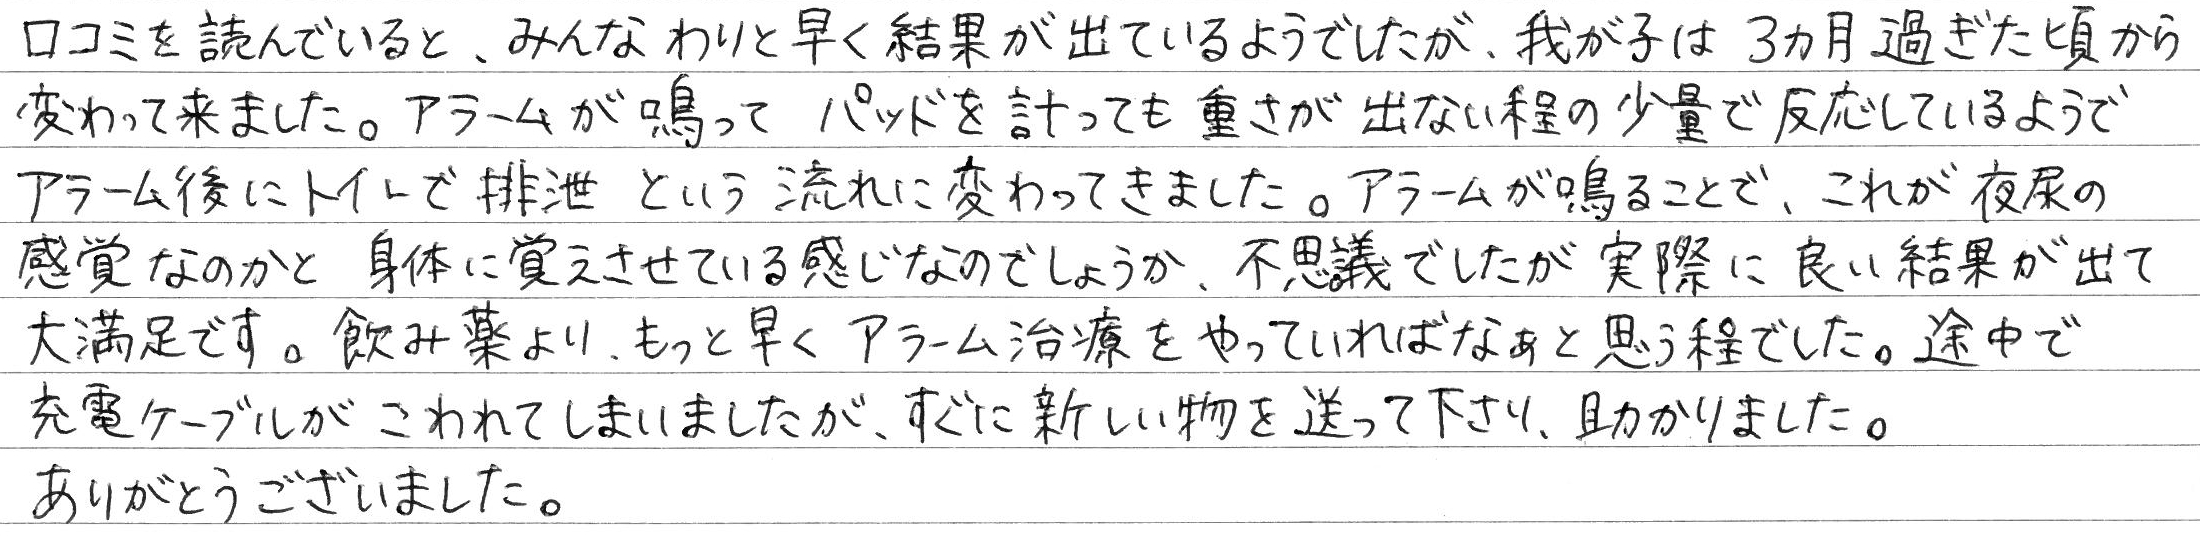 口コミを読んでいると、みんなわりと早く結果が出ているようでしたが、我が子は3カ月過ぎた頃から
変わって来ました。アラームが鳴って パッドを計っても重さが出ない程の少量で反応しているようで
アラーム後にトイレで排泄という流れに変わってきました。アラームが鳴ることで、これが夜尿の
感覚なのかと 身体に覚えさせている感じなのでしょうか、不思議でしたが実際に良い結果が出て
大満足です。飲み薬より、もっと早くアラーム治療をやっていればなぁと思う程でした。途中で
充電ケーブルがこわれてしまいましたが、すぐに新しい物を送って下さり、助かりました。
ありがとうございました。